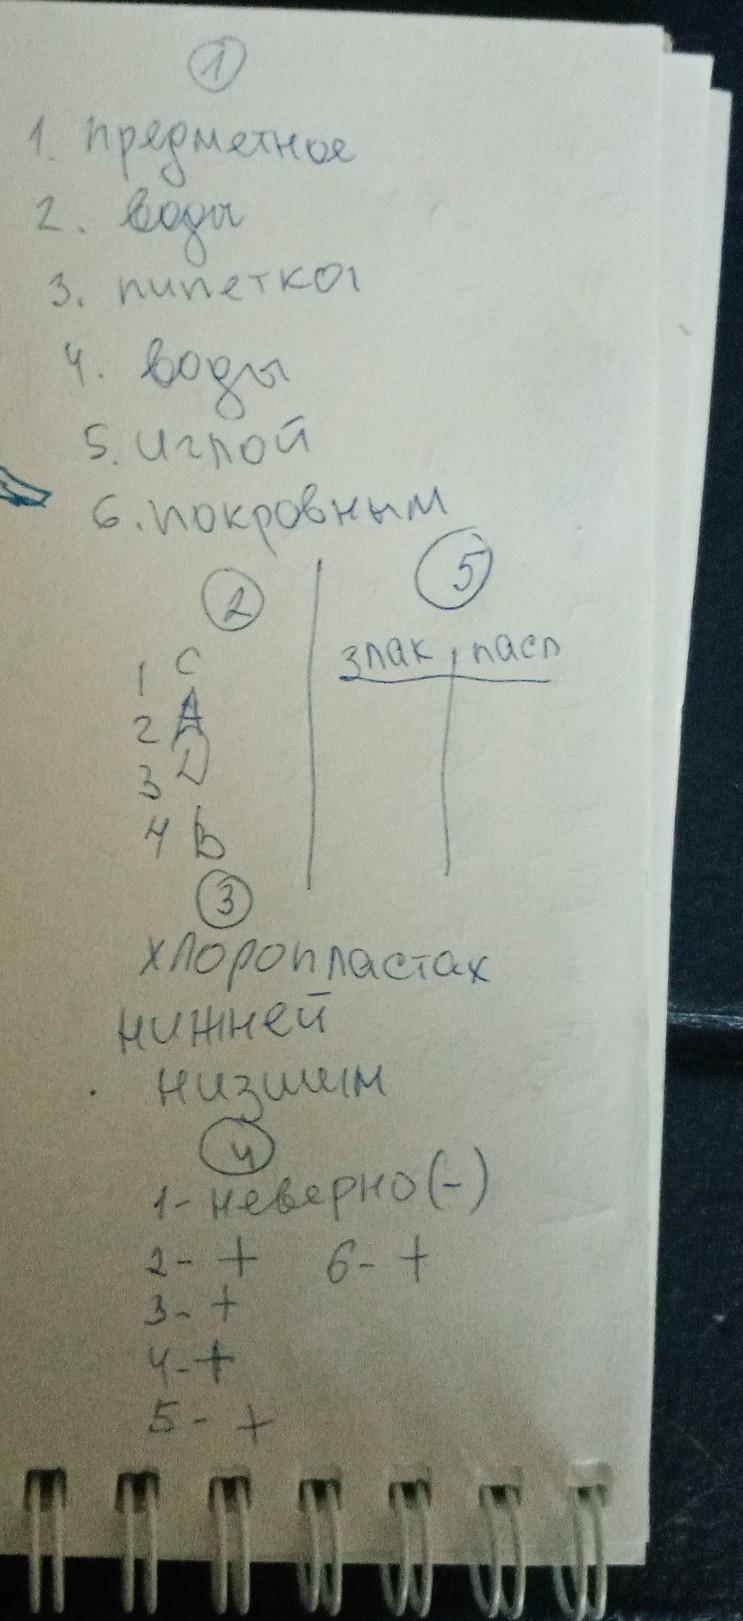 1
1. предметное
2. воды
3. пипеткой
4. воды
5. иглой
6. покровным
2
1 C
2 A
3 D
4 B
5
злак пасл
3
хлоропластах
нижней
низшим
4
1- неверно (-)
2- + 6- +
3- +
4- +
5- +